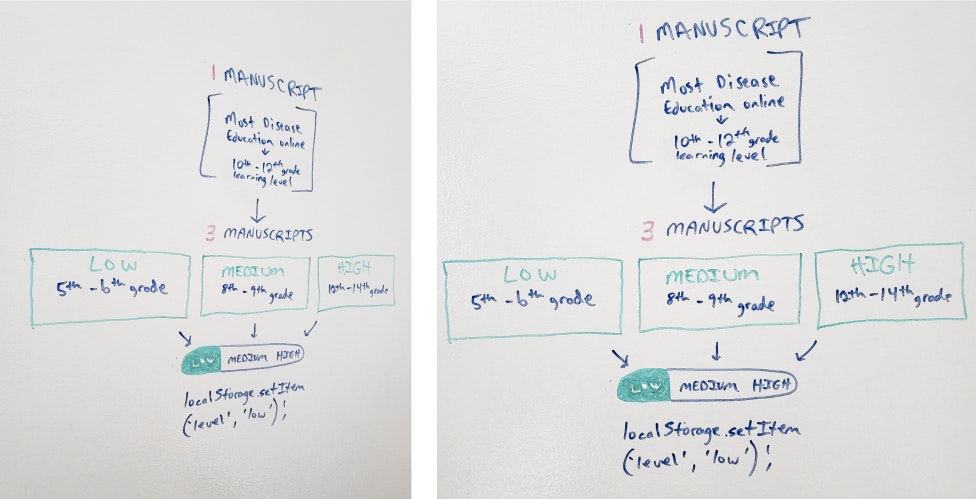 1 MANUSCRIPT
Most Disease
Education online
10th - 12th grade
learning level
3 MANUSCRIPTS
LOW
5th - 6th grade
MEDIUM
8th - 9th grade
HIGH
12th - 14th grade
LOW MEDIUM HIGH
localStorage.setItem
('level', 'low');
1 MANUSCRIPT
Most Disease
Education online
10th - 12th grade
learning level
3 MANUSCRIPTS
LOW
5th - 6th grade
MEDIUM
8th - 9th grade
HIGH
12th - 14th grade
LOW MEDIUM HIGH
localStorage.setItem
('level', 'low');